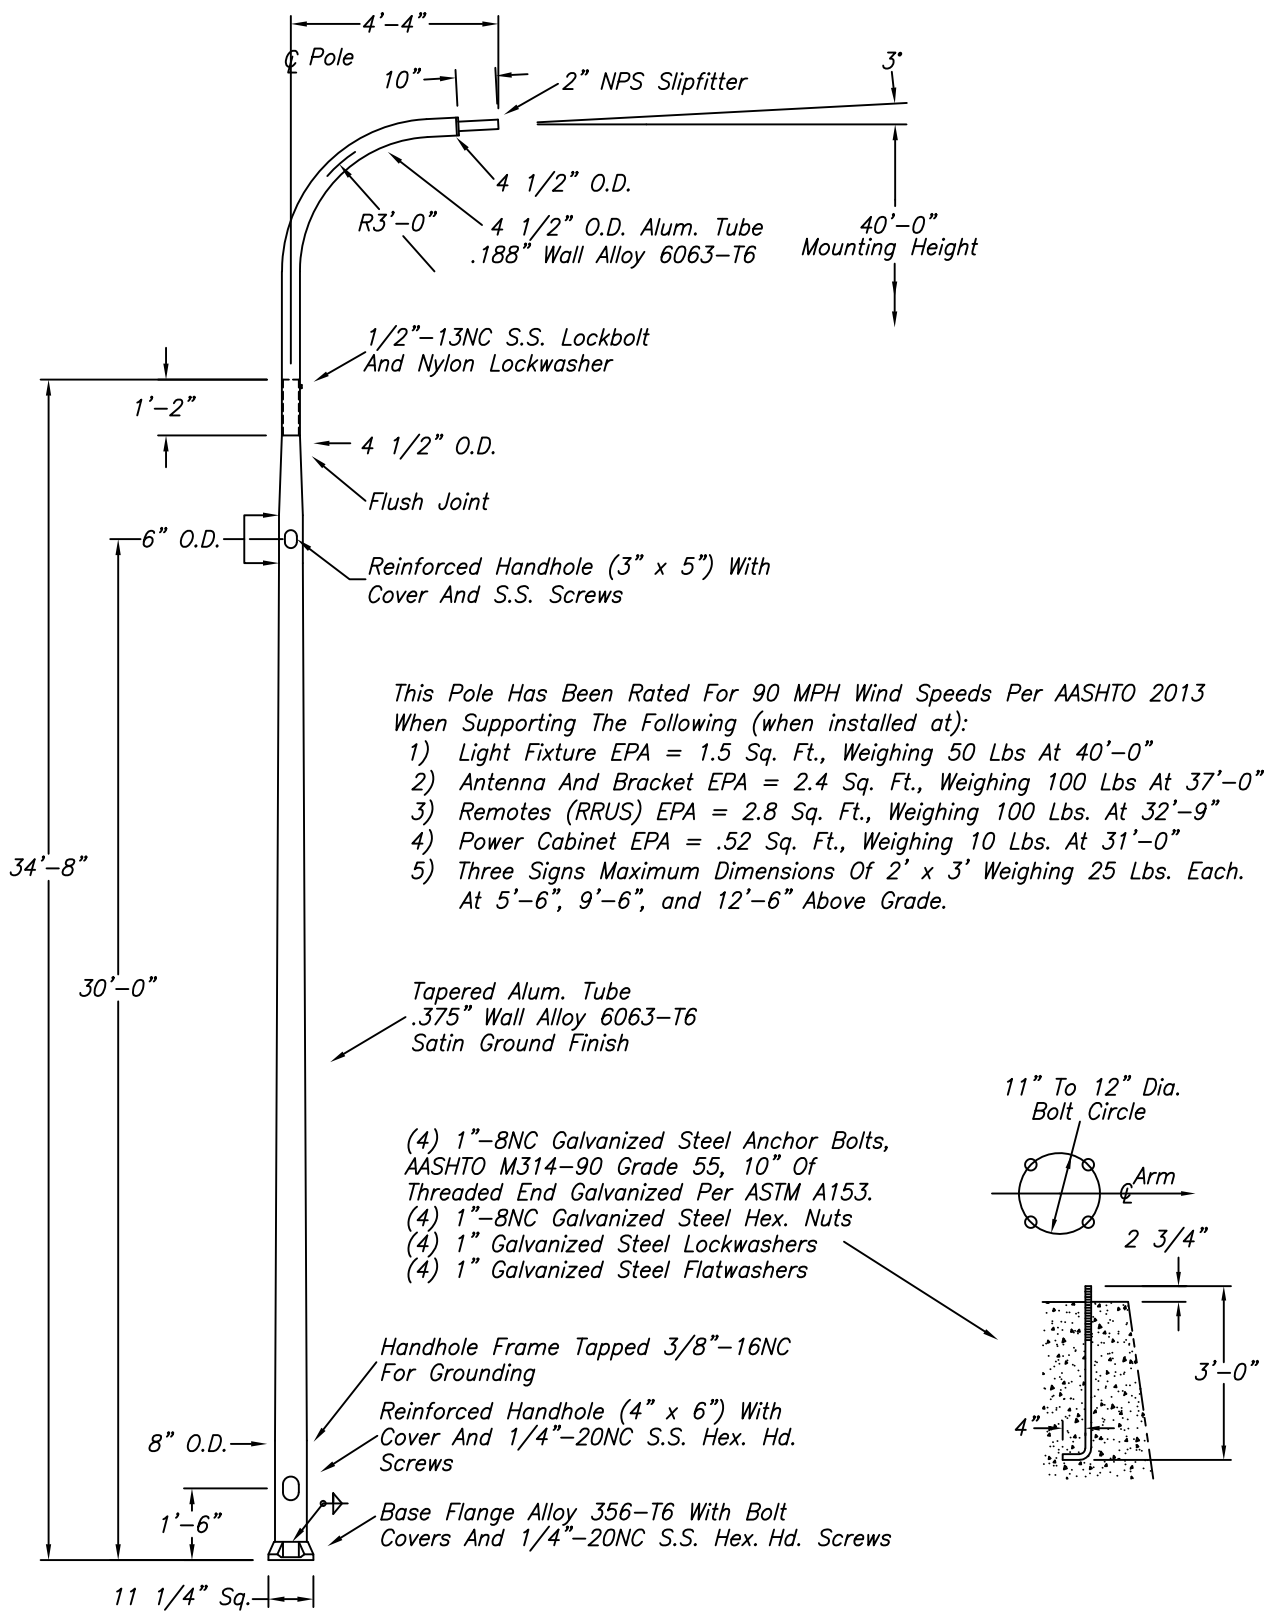 4'-4"
℄ Pole
10"
2" NPS Slipfitter
3°
4 1/2" O.D.
R3'-0"
4 1/2" O.D. Alum. Tube
.188" Wall Alloy 6063-T6
40'-0"
Mounting Height
1/2"-13NC S.S. Lockbolt
And Nylon Lockwasher
1'-2"
4 1/2" O.D.
Flush Joint
6" O.D.
Reinforced Handhole (3" x 5") With
Cover And S.S. Screws
This Pole Has Been Rated For 90 MPH Wind Speeds Per AASHTO 2013
When Supporting The Following (when installed at):
1) Light Fixture EPA = 1.5 Sq. Ft., Weighing 50 Lbs At 40'-0"
2) Antenna And Bracket EPA = 2.4 Sq. Ft., Weighing 100 Lbs At 37'-0"
3) Remotes (RRUS) EPA = 2.8 Sq. Ft., Weighing 100 Lbs. At 32'-9"
4) Power Cabinet EPA = .52 Sq. Ft., Weighing 10 Lbs. At 31'-0"
5) Three Signs Maximum Dimensions Of 2' x 3' Weighing 25 Lbs. Each.
At 5'-6", 9'-6", and 12'-6" Above Grade.
34'-8"
30'-0"
Tapered Alum. Tube
.375" Wall Alloy 6063-T6
Satin Ground Finish
11" To 12" Dia.
Bolt Circle
(4) 1"-8NC Galvanized Steel Anchor Bolts,
AASHTO M314-90 Grade 55, 10" Of
Threaded End Galvanized Per ASTM A153.
(4) 1"-8NC Galvanized Steel Hex. Nuts
(4) 1" Galvanized Steel Lockwashers
(4) 1" Galvanized Steel Flatwashers
℄ Arm
2 3/4"
3'-0"
4"
Handhole Frame Tapped 3/8"-16NC
For Grounding
Reinforced Handhole (4" x 6") With
Cover And 1/4"-20NC S.S. Hex. Hd.
Screws
8" O.D.
1'-6"
Base Flange Alloy 356-T6 With Bolt
Covers And 1/4"-20NC S.S. Hex. Hd. Screws
11 1/4" Sq.